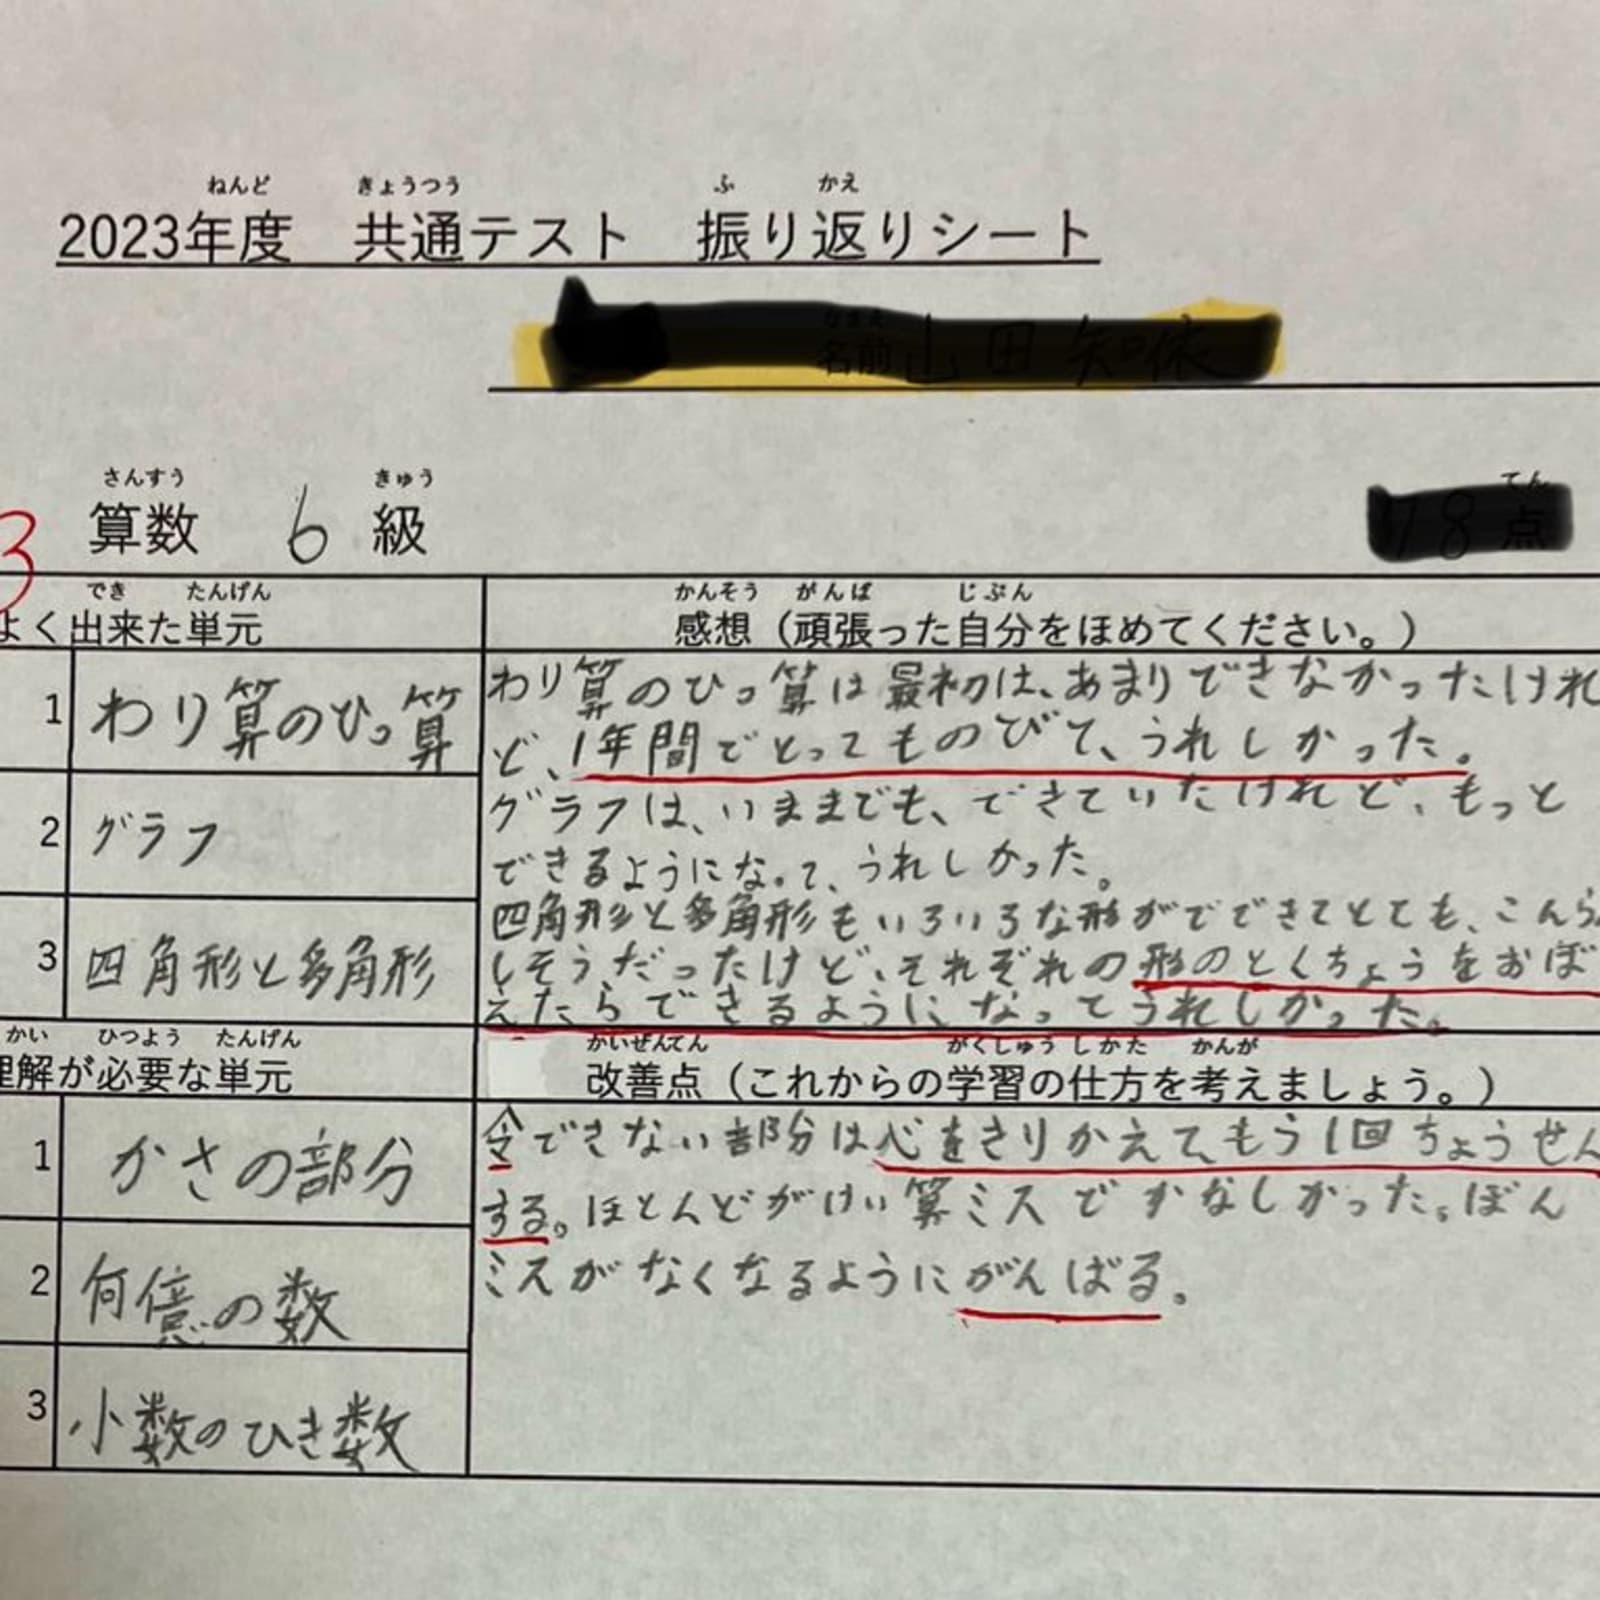 ねんど きょうつう ふ かえ
2023年度 共通テスト 振り返りシート
さんすう きゅう
算数 6 級
でき たんげん
よく出来た単元
かんそう がんば じぶん
感想（頑張った自分をほめてください。）
1 わり算のひっ算
2 グラフ
3 四角形と多角形
わり算のひっ算は最初は、あまりできなかったけれ
ど、1年間でとってものびて、うれしかった。
グラフは、いままでも、できていたけれど、もっと
できるようになって、うれしかった。
四角形と多角形もいろいろな形がでできてとても、こんら
しそうだったけど、それぞれの形のとくちょうをおぼ
えたらできるようになってうれしかった。
かい ひつよう たんげん
理解が必要な単元
かいぜんてん がくしゅう しかた かんが
改善点（これからの学習の仕方を考えましょう。）
1 かさの部分
2 何億の数
3 小数のひき数
今できない部分は心をきりかえて、もう1回ちょうせん
する。ほとんどがけい算ミスでかなしかった。ぼん
ミスがなくなるようにがんばる。